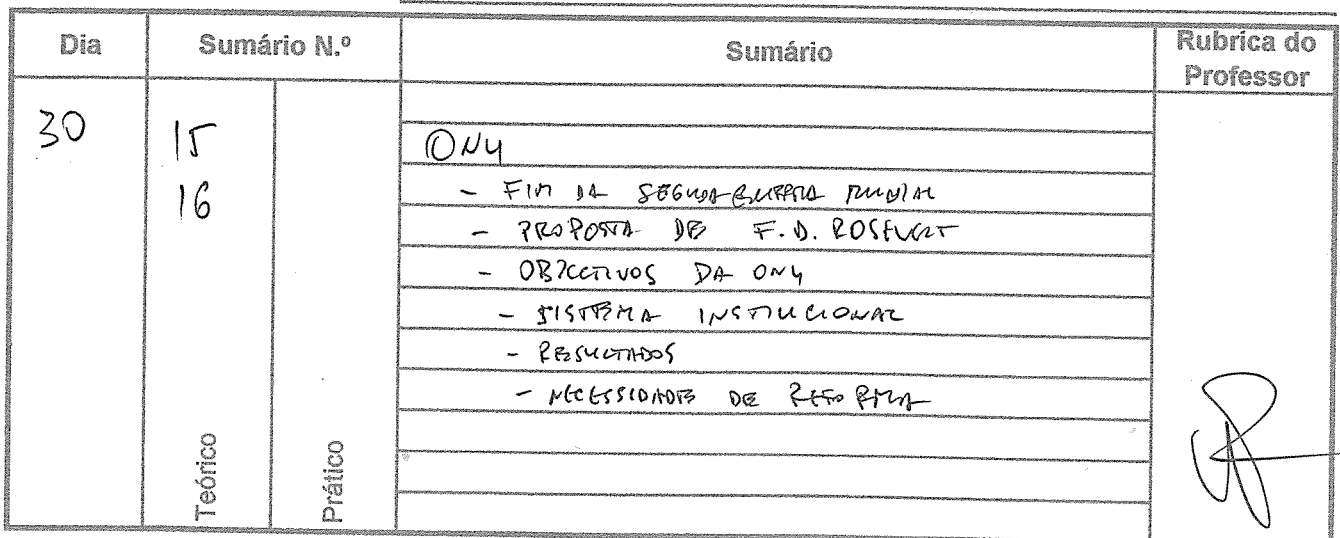 Dia Sumário N.º Sumário Rubrica do Professor
30 15 ONU
16 - FIM DA SEGUNDA GUERRA MUNDIAL
- PROPOSTA DE F. D. ROSEVELT
- OBJECTIVOS DA ONU
- SISTEMA INSTITUCIONAL
- RESULTADOS
- NECESSIDADE DE REFORMA
Teórico Prático